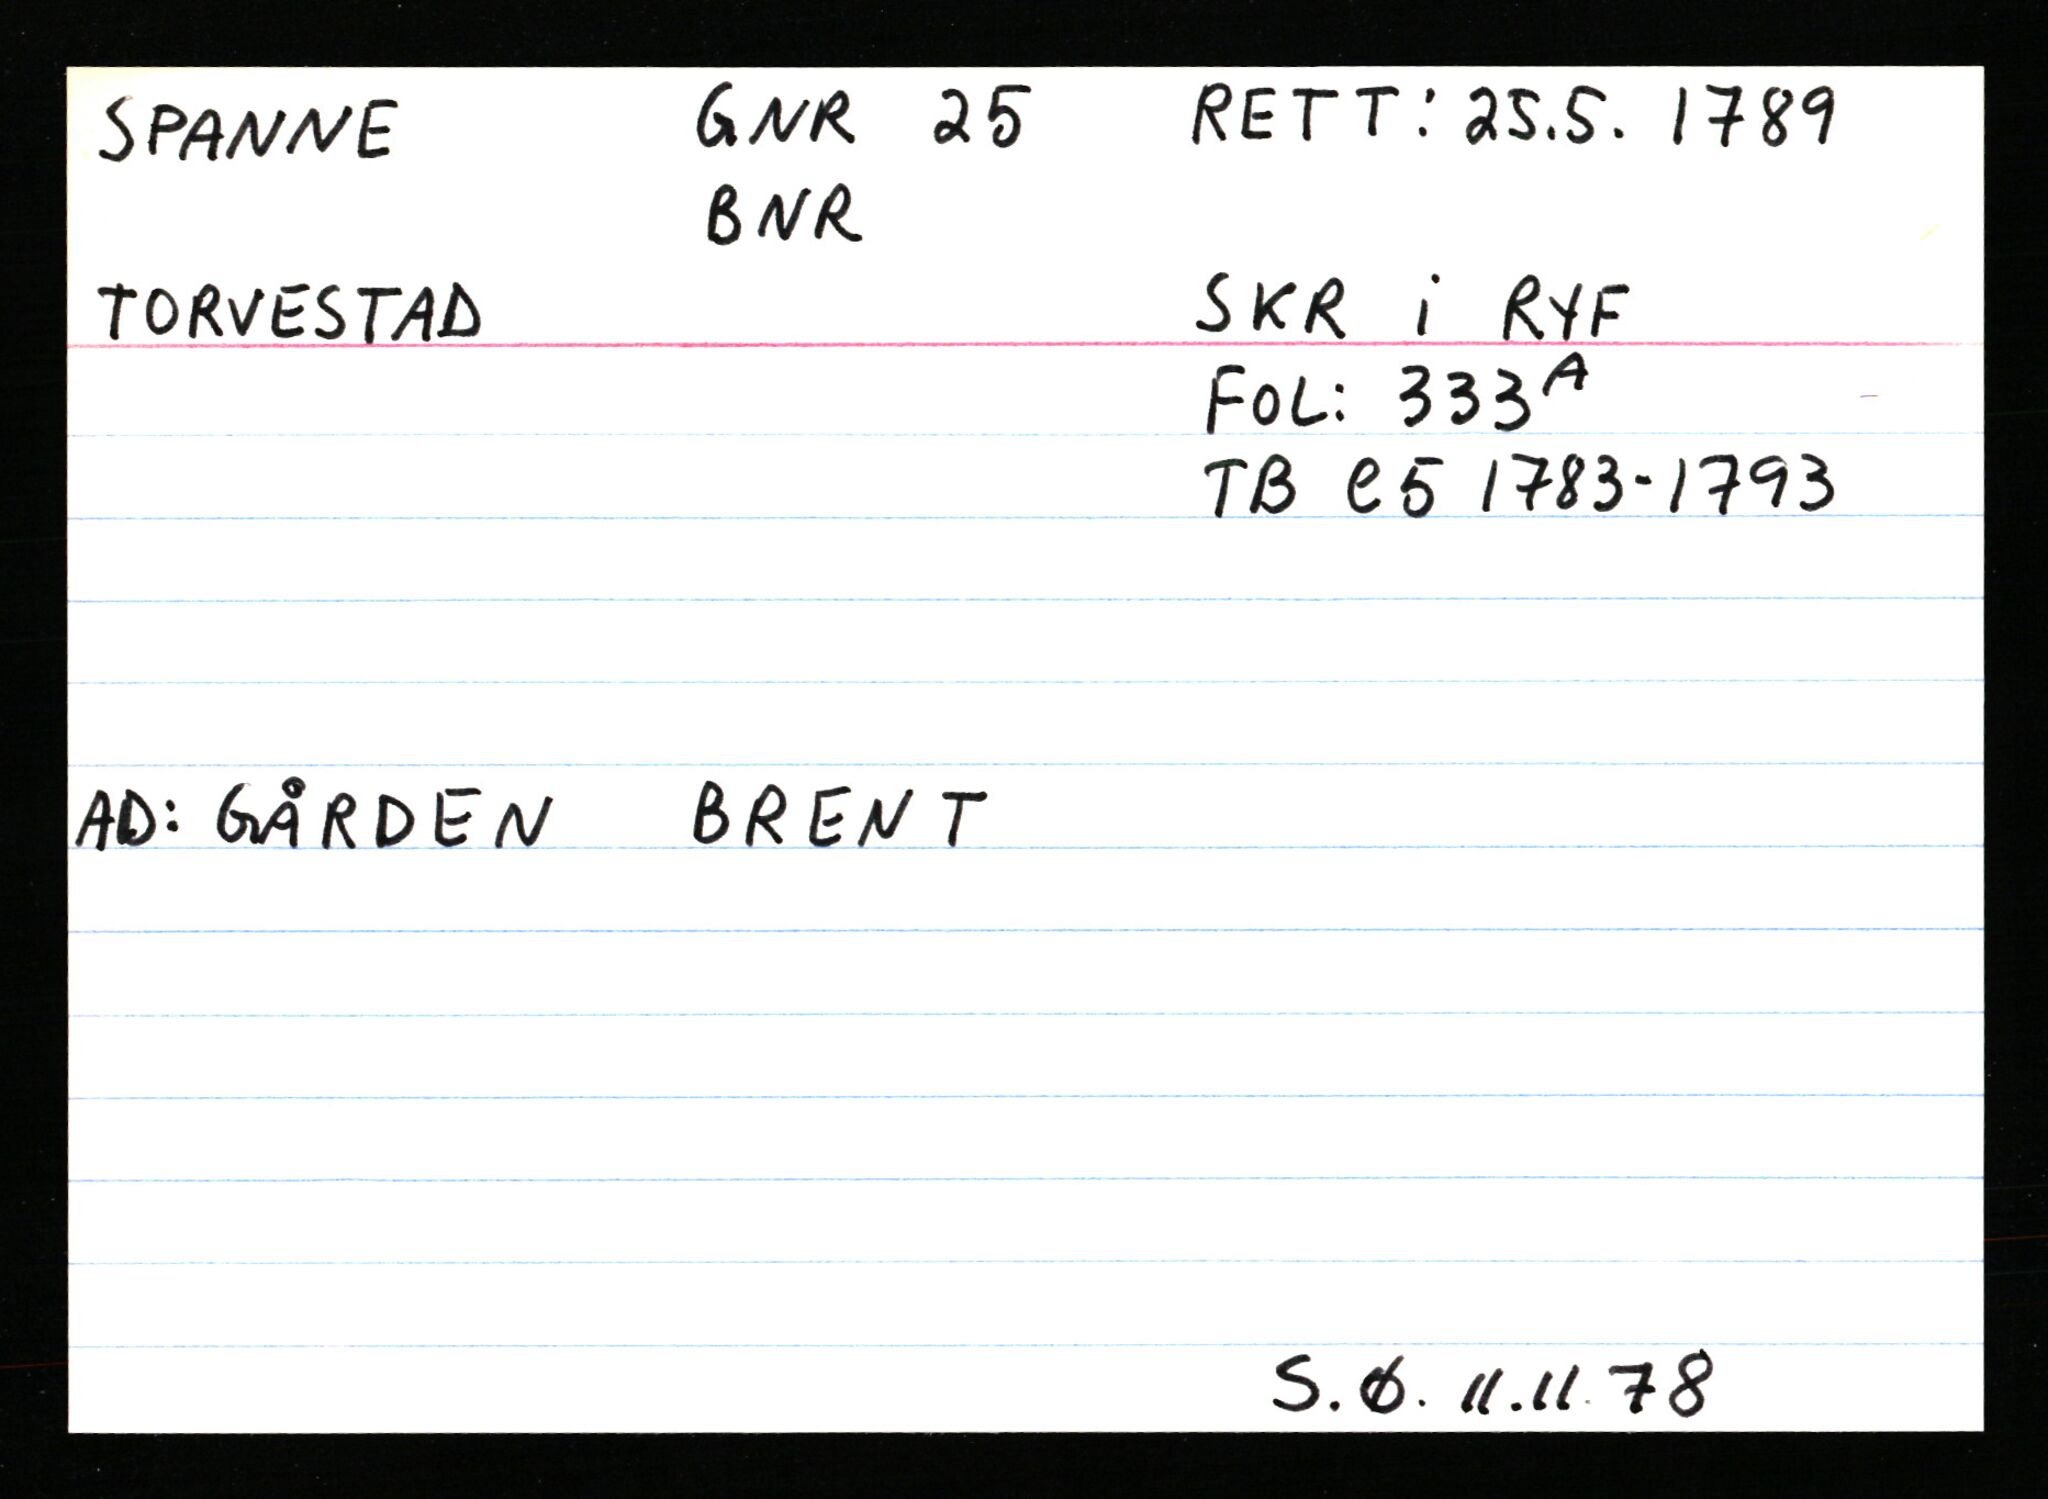 SPANNE GNR 25 RETT: 25.5. 1789
BNR
TORVESTAD SKR i RYF
FOL: 333A
TB C5 1783-1793
AD: GÅRDEN BRENT
S.Ø. 11.11.78